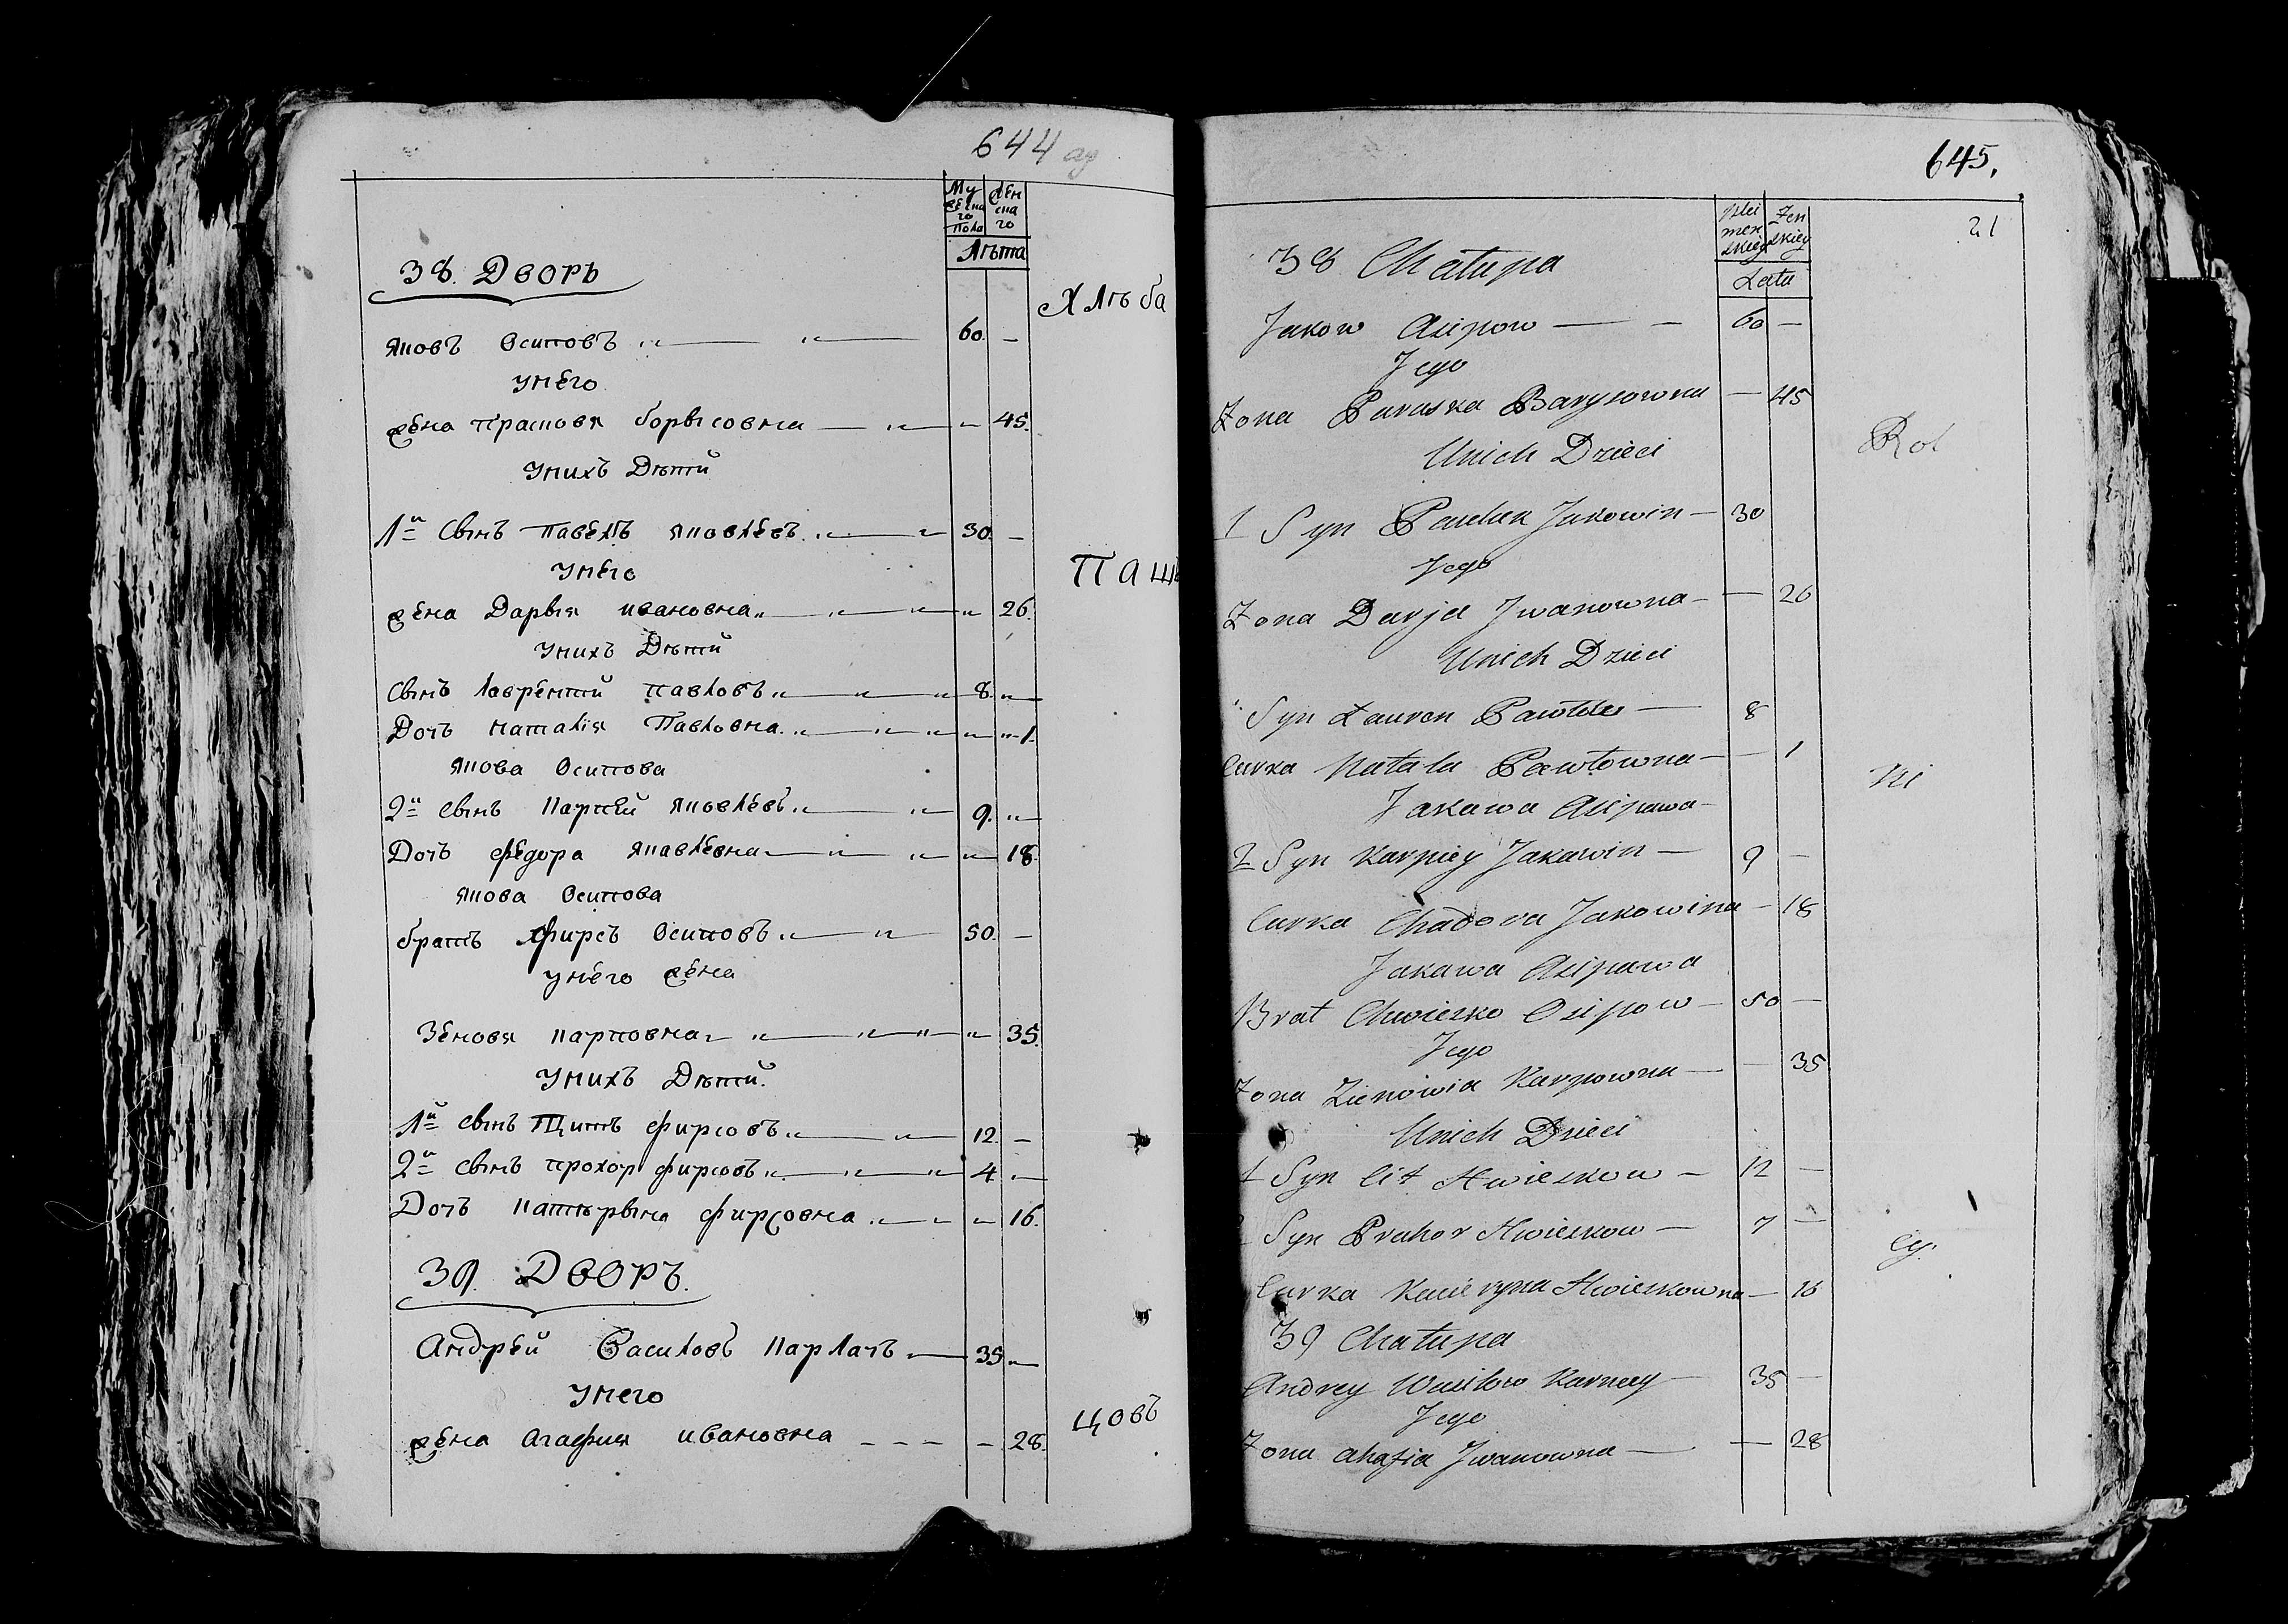 644
Му жеска го Пола
жен ска го
Лѣта
38. Дворъ
Хлѣба
яковъ Осиповъ 60. —
унего
жена прасковя борысовна — 45.
унихъ Дѣтй
1й Сынъ павелъ яковлевъ 30. —
унего
Паш
жена Дарыя ивановна 26.
унихъ Дѣтй
Сынъ лаврентй павловъ 8.
Дочъ наталія Павловна 1.
якова Осипова
2й сынъ карпей яковлевъ 9.
Дочъ федора яковлевна 18.
якова Осипова
братъ фирсъ Осиповъ 50. —
унего жена
Зеновя карповна 35.
унихъ Дѣтй.
1й сынъ Цитъ фирсовъ 12. —
2й сынъ прохор фирсовъ 4 —
Дочъ катѣрына фирсовна 16.
39. Дворъ.
Андрей Василовъ Карлачъ 35
унего
цовъ
жена агафия ивановна — 28.
645.
21
men skiey
Zen skiey
Lata
38 Chatupa
Jakow Asipow — 60 —
Jego
Zona Paraska Barysowna — 45
Rol
Unich Dzieci
1 Syn Paulek Jakowin — 30
Jego
Zona Darja Jwanowna — 26
Unich Dzieci
Syn Lauren Pawłów — 8
Curka Natala Pawłowna — 1
ni
Jakawa Asipawa
2 Syn Karpiey Jakawin — 9 —
Curka Chadora Jakowina — 18
Jakawa Asipawa
Brat Chwiesko Osipow — 50 —
Jego
Zona Zienówia Karpowna — 35
Unich Dzieci
1 Syn Cit Hwieskow — 12 —
Syn Prahor Hwieskow — 7 —
cy.
Curka Kacieryna Hwieskowna — 16
39 Chatupa
Andrey Wasilow 35 —
Jego
Zona ahafia Jwanowna — 28